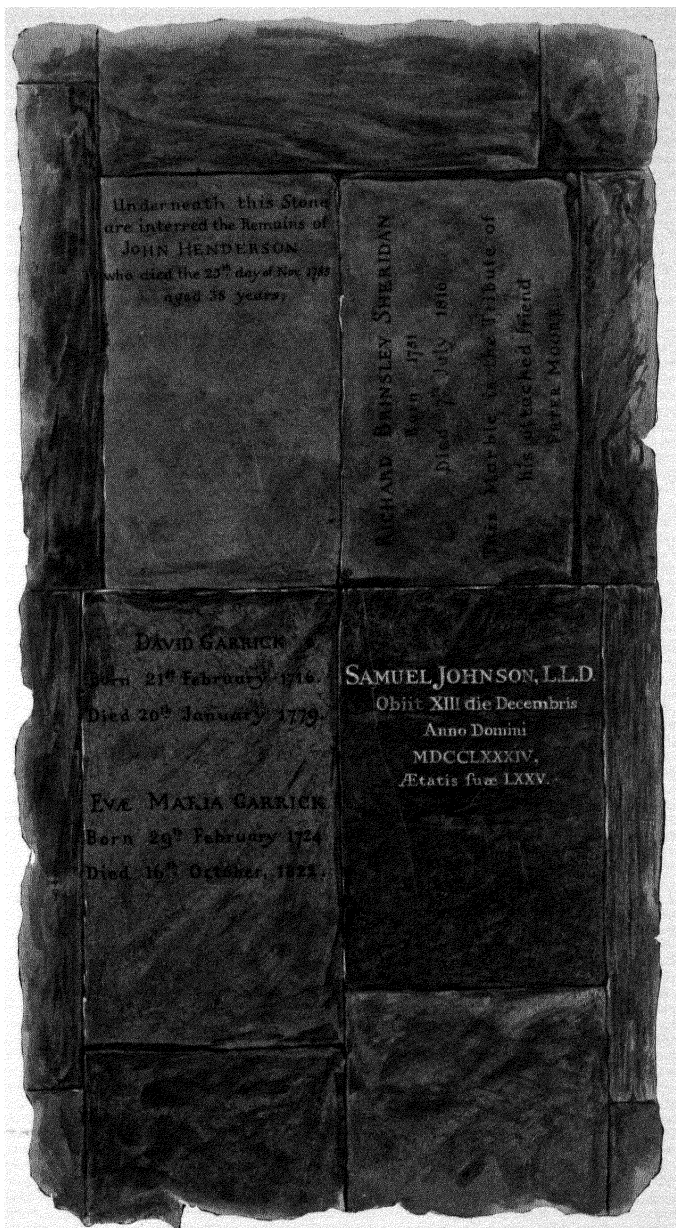 Underneath this Stone
are interred the Remains of
JOHN HENDERSON
who died the 25th day of Nov. 1785
aged 38 years,
RICHARD BRINSLEY SHERIDAN
Born 1751
Died 7th July 1816
This Marble is the Tribute of
his attached friend
PETER MOORE
DAVID GARRICK
Born 21st February 1716.
Died 20th January 1779.
EVÆ MARIA GARRICK
Born 29th February 1724
Died 16th October, 1822.
SAMUEL JOHNSON, L.L.D.
Obiit XIII die Decembris
Anno Domini
MDCCLXXXIV.
Ætatis ſuæ LXXV.